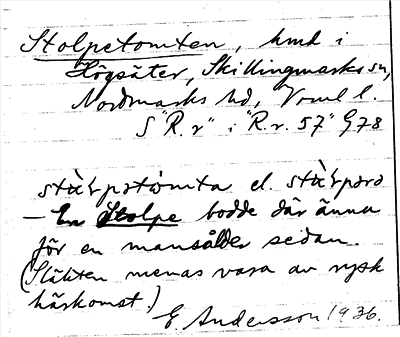 Stolpetomten, hmd i
Högsäter, Skillingmarks sn,
Nordmarks hd, Vrml l.
S "R. r" i "R.r. 57" G78
el.
— En Stolpe bodde där ännu
för en mansålder sedan.
(Släkten menas vara av rysk
härkomst.)
E. Andersson 1936.